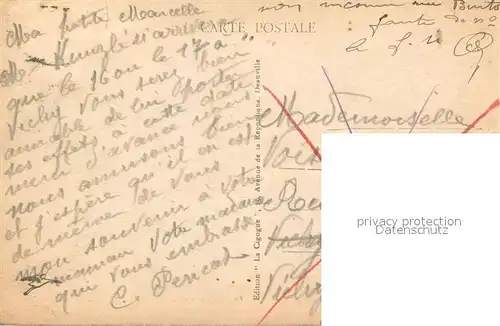 Ma petite Marcelle
CARTE POSTALE
M. Kunzlé n'arrivera
que le 16 ou le 17 à
Vichy Vous serez bien
aimable de lui porter
ses effets à cette date
merci d'avance nous
nous amusons bien
et j'espère qu'il en est
de même de vous
mon souvenir à votre
maman votre madame
qui vous embrasse
C. Pericat
non inconnu rue
faute de no
Mademoiselle
Vichy
Vichy
Edition " La Cigogne " Avenue de la République, Deauville
privacy protection
Datenschutz